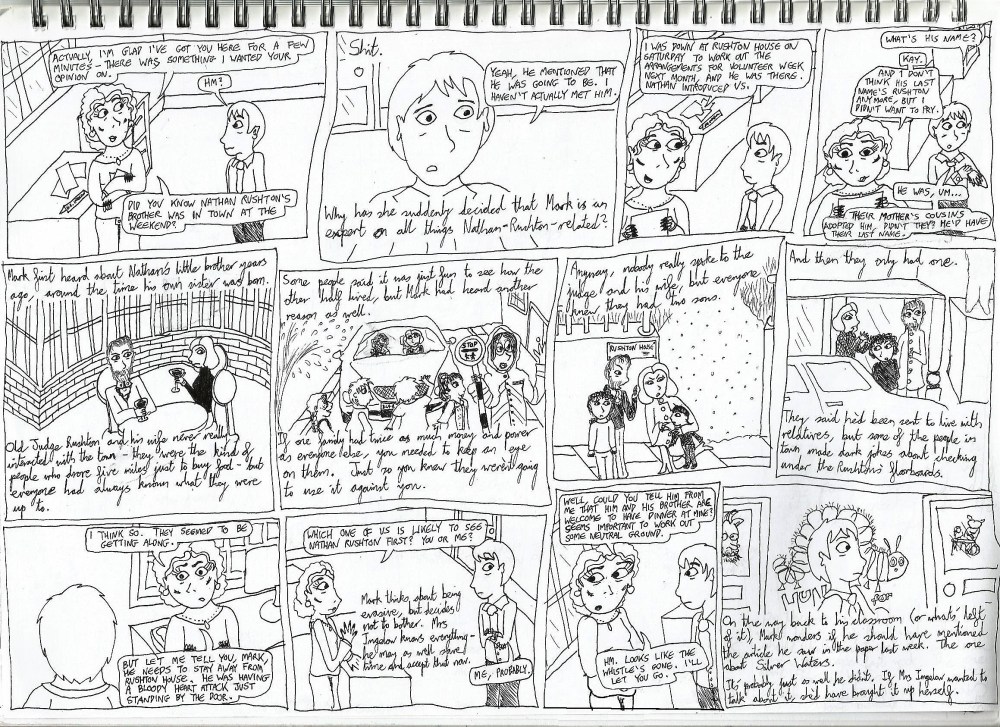 ACTUALLY, I'M GLAD I'VE GOT YOU HERE FOR A FEW
MINUTES - THERE WAS SOMETHING I WANTED YOUR
OPINION ON.
HM?
DID YOU KNOW NATHAN RUSHTON'S
BROTHER WAS IN TOWN AT THE
WEEKEND?
Shit.
YEAH, HE MENTIONED THAT
HE WAS GOING TO BE. I
HAVEN'T ACTUALLY MET HIM.
Why has she suddenly decided that Mark is an
expert on all things Nathan-Rushton-related?
I WAS DOWN AT RUSHTON HOUSE ON
SATURDAY TO WORK OUT THE
ARRANGEMENTS FOR VOLUNTEER WEEK
NEXT MONTH, AND HE WAS THERE.
NATHAN INTRODUCED US.
WHAT'S HIS NAME?
KAY.
AND I DON'T
THINK HIS LAST
NAME'S RUSHTON
ANYMORE, BUT I
DIDN'T WANT TO PRY.
HE WAS, UM...
THEIR MOTHER'S COUSINS
ADOPTED HIM, DIDN'T THEY? HE'D HAVE
THEIR LAST NAME.
Mark first heard about Nathan's little brother years
ago, around the time his own sister was born.
Old Judge Rushton and his wife never really
interacted with the town - they were the kind of
people who drove five miles just to buy food - but
everyone had always known what they were
up to.
Some people said it was just fun to see how the
other half lived, but Mark had heard another
reason as well.
STOP
If one family had twice as much money and power
as everyone else, you needed to keep an eye
on them. Just so you knew they weren't going
to use it against you.
Anyway, nobody really spoke to the
judge and his wife, but everyone
knew they had two sons.
RUSHTON HOUSE
And then they only had one.
They said he'd been sent to live with
relatives, but some of the people in
town made dark jokes about checking
under the Rushtons' floorboards.
I THINK SO. THEY SEEMED TO BE
GETTING ALONG.
BUT LET ME TELL YOU, MARK,
HE NEEDS TO STAY AWAY FROM
RUSHTON HOUSE. HE WAS HAVING
A BLOODY HEART ATTACK JUST
STANDING BY THE DOOR.
WHICH ONE OF US IS LIKELY TO SEE
NATHAN RUSHTON FIRST? YOU OR ME?
Mark thinks about being
evasive, but decides
not to bother. Mrs
Ingelow knows everything -
he may as well save
time and accept that now.
ME, PROBABLY.
WELL, COULD YOU TELL HIM FROM
ME THAT HIM AND HIS BROTHER ARE
WELCOME TO HAVE DINNER AT MINE?
SEEMS IMPORTANT TO WORK OUT
SOME NEUTRAL GROUND.
HM. LOOKS LIKE THE
WHISTLE'S GONE. I'LL
LET YOU GO.
On the way back to his classroom (or what's left
of it), Mark wonders if he should have mentioned
the article he saw in the paper last week. The one
about Silver Waters.
It's probably just as well he didn't. If Mrs Ingelow wanted to
talk about it, she'd have brought it up herself.